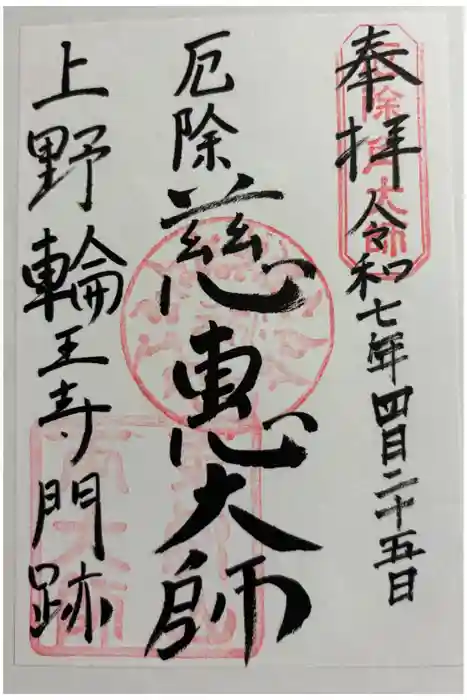 奉拝 令和七年四月二十五日
厄除 慈惠大師
上野輪王寺門跡
厄除角大師